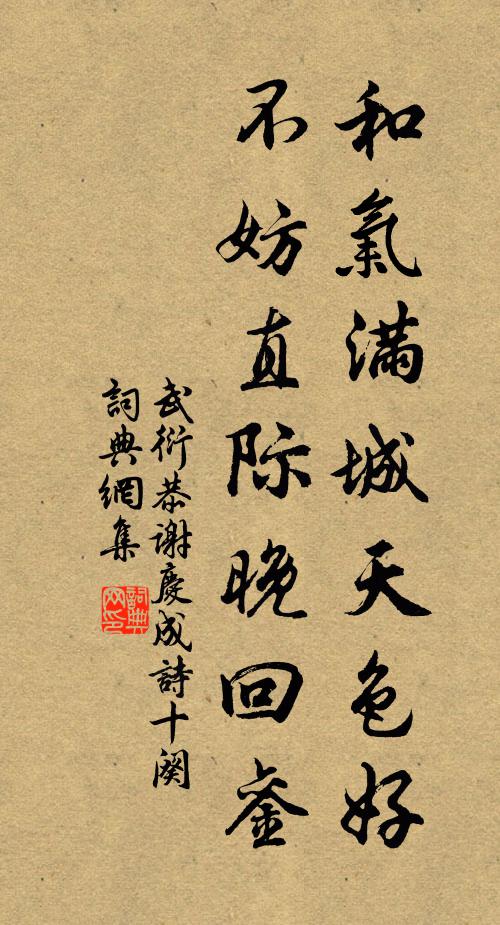 和氣滿城天色好
不妨直际晚回銮
武衍恭謝慶成詩十闋
詞典網集
詞典網印